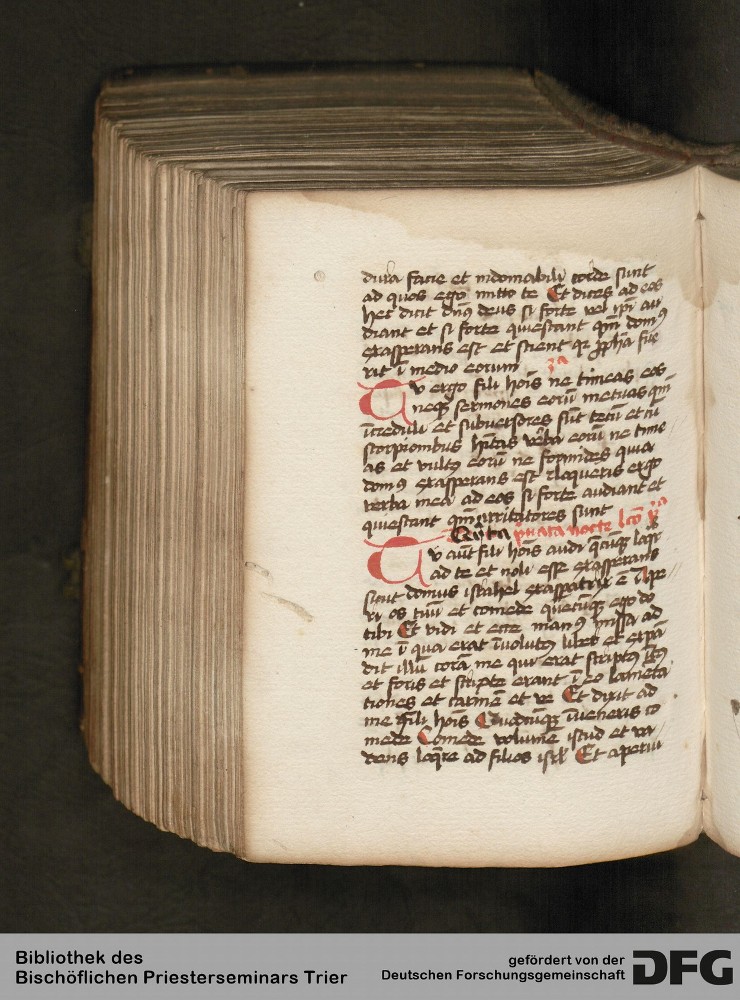 dura facie et indomabili corde sunt
ad quos ego mitto te Et dices ad eos
hec dicit dn̄s deus si forte vel ip̄i au
diant et si forte quiescant qm̄ domꝰ
exasperans est et scient qr ꝓpha fue
rit ī medio eorum 3ª
Tv ergo fili hoīs ne timeas eos
neqꝫ sermones eorū metuas qm̄
īcreduli et subuersores sūt tecū et cū
scorpionibus hītas v̄ba eorū ne time
as et vultꝰ eorū ne formides quia
domꝰ exasperans est loqueris ergo
verba mea ad eos si forte audiant et
quiescant qm̄ irritatores sunt
nocte
Tv aūt fili hoīs audi q̄cūqꝫ loqr
ad te et noli esse exasperans
sicut domus israhel exaspatrix ē Ape
ri os tuū et comede quecūqꝫ ego do
tibi Et vidi et ecce manꝰ missa ad
me ī qua erat īvolutꝰ liber et expā
dit illū corā me qui erat scriptꝰ ītꝰ
et foris et scripte erant ī eo lamēta
tiones et carmē et ve Et dixit ad
me fili hoīs Quodcūqꝫ īveneris co
mede Comede volumē istud et va
dens loq̄re ad filios isrl̄ Et aperui
Bibliothek des
Bischöflichen Priesterseminars Trier
gefördert von der
Deutschen Forschungsgemeinschaft
DFG